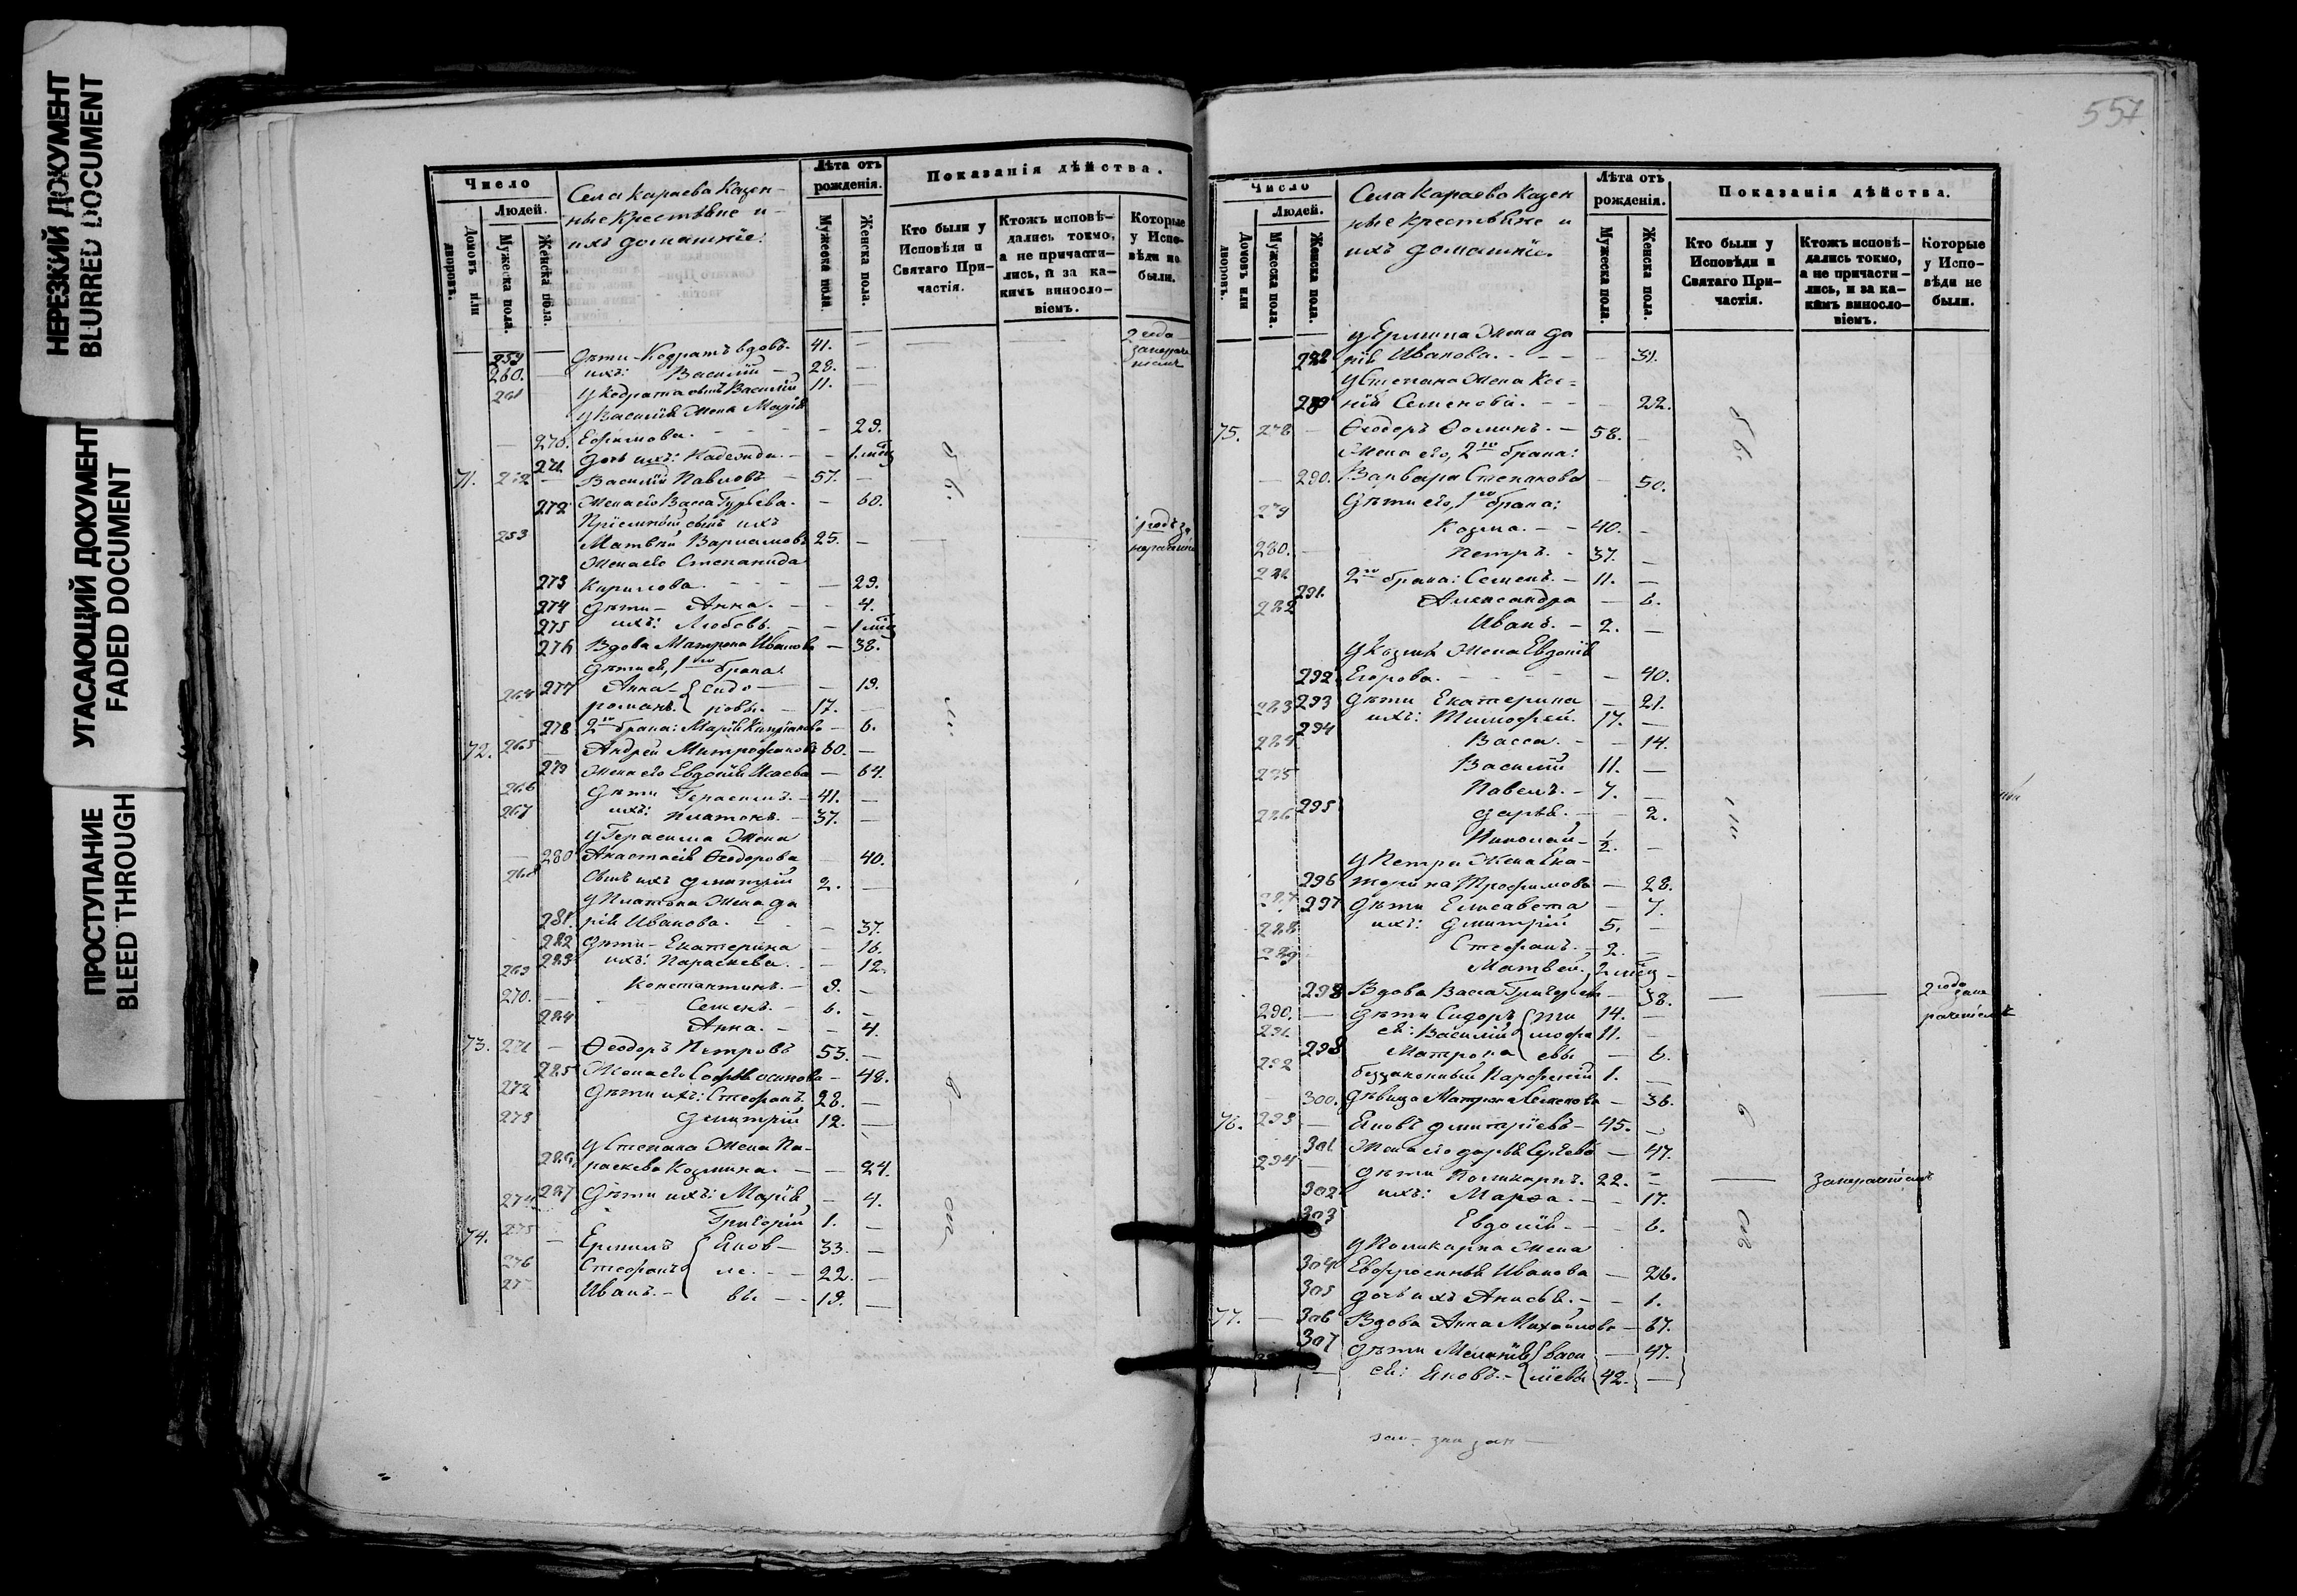 НЕРЕЗКИЙ ДОКУМЕНТ
BLURRED DOCUMENT
УГАСАЮЩИЙ ДОКУМЕНТ
FADED DOCUMENT
ПРОСТУПАНИЕ
BLEED THROUGH
Число
Людей.
Домовъ или дворовъ.
Мужеска пола.
Женска пола.
Села Караева Казен-
ные Крестьяне и
ихъ домашніе.
Лѣта отъ рожденія.
Мужеска пола
Женска пола.
Показанія дѣйства.
Кто были у Исповѣди и Святаго Причастія.
Ктожъ исповѣ-
дались токмо,
а не причасти-
лись, и за ка-
кимъ виносло-
віемъ.
Которые
у Испо-
вѣди не
были.
259 Дѣти Кодратъ вдовъ. 41. — 2 года
260. — ихъ: Василій — 28. —
261 У Кодрата сынъ Василій 11. —
У Василія Жена Марія
270. Ефимова. — 29.
271. Дочь ихъ: Надежда. — 1 мѣц
71. 262 — Василій Павловъ — 57. —
272 Жена его Васса Гурьева. — 60.
Пріемный сынъ ихъ
263 Матвей Варламовъ 25. —
Жена его Степанида
273 Кирилова. — 29.
274 Дѣти — Анна. — 4.
275 ихъ: Любовь. — 1 мѣц
276 Вдова Матрона Иванова — 38.
Дѣти ея, 1го брака:
277 Анна { Сидо — 19.
264 Романъ. { ровы. — 17. —
278 2го брака: Марія — 6.
72. 265 — Андрей Митрофановъ 60. —
279 Жена его Евдокія Исаева — 64.
266 Дѣти Герасимъ. — 41. —
267 ихъ: Платонъ. — 37. —
У Герасима Жена
— 280 Анастасія Ѳеодорова — 40.
268 Сынъ ихъ Димитрій 2. —
У Платона Жена Да
281. рія Иванова. — 37.
282 Дѣти — Екатерина — 16.
283 ихъ: Параскева. — 12.
269 Константинъ. — 9. —
270. — Семенъ. — 6. —
284 Анна. — 4.
73. 271 — Ѳеодоръ Петровъ 53. —
285 Жена его Софья Осипова — 48.
272 Дѣти ихъ: Стефанъ. 28. —
273 Димитрій 12. —
У Степана Жена Па-
286. раскева Козмина. — 24.
287 Дѣти ихъ: Марія — 4.
274 Григорій 1. —
74. 275 — Ермилъ { Яков — 33. —
276 Стефанъ { ле. — 22. —
27 Иванъ. — { вы — 19. —
557
Число
Людей.
Домовъ или дворовъ.
Мужеска пола.
Женска пола.
Села Караева Казен
ные Крестьяне и
ихъ домашніе.
Лѣта отъ рожденія.
Мужеска пола.
Женска пола.
Показанія дѣйства.
Кто были у
Исповѣди и
Святаго При-
частія.
Ктожъ исповѣ-
дались токмо,
а не причасти-
лись, и за ка-
кимъ виносло-
віемъ.
Которые
у Испо-
вѣди не
были.
У Ермила Жена Да
288 рія Иванова. — 31.
У Степана Жена Ксе=
289 нія Семенова. — 22.
75. 278 — Ѳеодоръ Ѳоминъ. — 58. —
Жена его, 2го брака:
— 290. Варвара Степанова — 50.
Дѣти его, 1го брака:
279 Козма. — 40. —
280. — Петръ. — 37. —
281 2го брака: Семенъ. — 11. —
291. Александра — 6.
282 Иванъ. — 2. —
У Козмы Жена Евдокія
292 Егорова. — 40.
293 Дѣти Екатерина — 21.
283 ихъ: Тимофей. 17. —
294 Васса. — 14.
284 Василій 11. —
285 Павелъ. — 7. —
295 Дарья. — 2.
286 Николай — ½. —
У Петра Жена Ека-
296 терина Трофимова — 28.
297 Дѣти Елисавета — 7.
287 ихъ: Димитрій 5. —
288 Стефанъ. — 2. —
289 Матвей. 2 мѣц —
298 Вдова Васса Григорьева — 38. — 2 года
290. — Дѣти Сидоръ { Ти 14. —
291 ея: Василій { мофе 11. —
298 Матрона { евы — 6.
292 беззаконный Парфеній 1. —
300. Дѣвица Матрона Семенова — 36.
76. 293 — Яковъ Димитріевъ — 45. —
301 Жена его Дарья Сергѣева — 47.
294 Дѣти Поликарпъ. 22. —
302 ихъ: Марѳа. — 17.
303 Евдокія — 6.
У Поликарпа Жена
304 Евфросинья Иванова — 26.
305 Дочь ихъ Анисья. — 1.
77. — 306 Вдова Анна Михайлова — 67.
307 Дѣти Меланія { Васи — 47.
ея: Яковъ. — { льевы 42. —